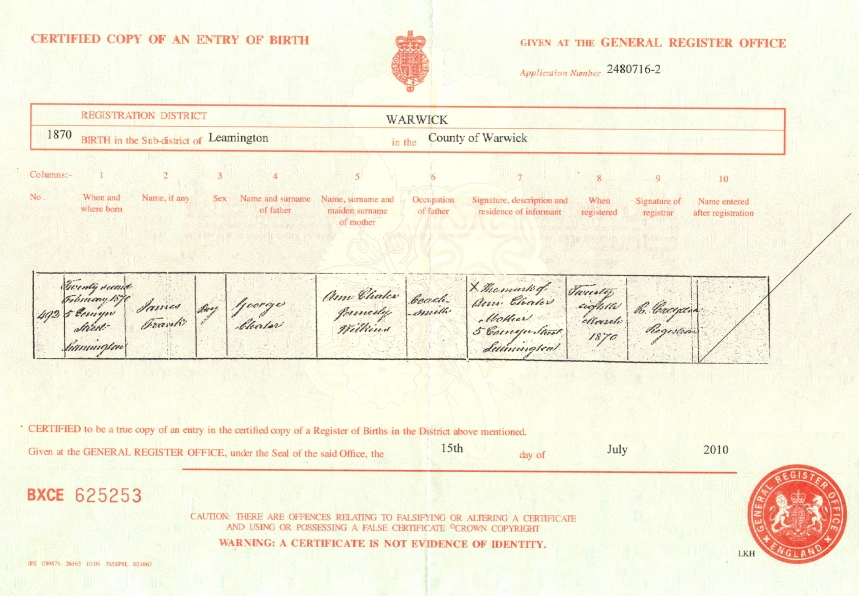 CERTIFIED COPY OF AN ENTRY OF BIRTH
GIVEN AT THE GENERAL REGISTER OFFICE
Application Number 2480716-2
REGISTRATION DISTRICT WARWICK
1870 BIRTH in the Sub-district of Leamington in the County of Warwick
Columns:- 1 2 3 4 5 6 7 8 9 10
No. When and where born Name, if any Sex Name and surname of father Name, surname and maiden surname of mother Occupation of father Signature, description and residence of informant When registered Signature of registrar Name entered after registration
492
Twenty second
February 1870
5 Comyn
Street
Leamington
James
Frank
Boy
George
Chater
Ann Chater
formerly
Wilkins
Coach-
smith
X The mark of
Ann Chater
Mother
5 Comyn Street
Leamington
Twenty
eighth
March
1870
R.
Registrar
CERTIFIED to be a true copy of an entry in the certified copy of a Register of Births in the District above mentioned.
Given at the GENERAL REGISTER OFFICE, under the Seal of the said Office, the 15th day of July 2010
BXCE 625253
CAUTION: THERE ARE OFFENCES RELATING TO FALSIFYING OR ALTERING A CERTIFICATE
AND USING OR POSSESSING A FALSE CERTIFICATE ©CROWN COPYRIGHT
WARNING: A CERTIFICATE IS NOT EVIDENCE OF IDENTITY.
GENERAL REGISTER OFFICE
ENGLAND
LKH